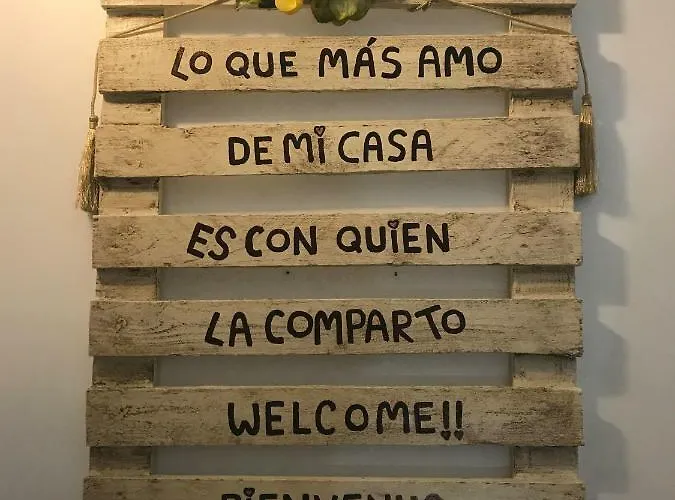 LO QUE MÁS AMO
DE MI CASA
ES CON QUIEN
LA COMPARTO
WELCOME!!